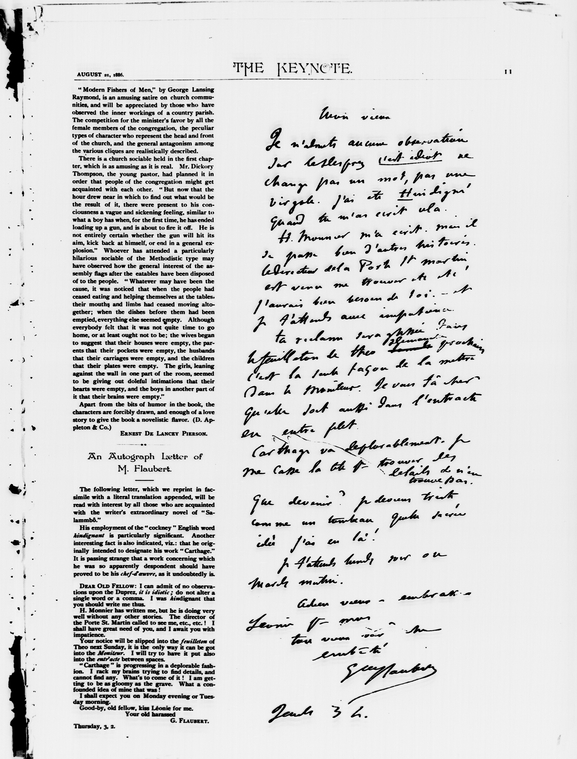 AUGUST 21, 1886.
THE KEYNOTE.
11
"Modern Fishers of Men," by George Lansing
Raymond, is an amusing satire on church commu-
nities, and will be appreciated by those who have
observed the inner workings of a country parish.
The competition for the minister's favor by all the
female members of the congregation, the peculiar
types of character who represent the head and front
of the church, and the general antagonism among
the various cliques are realistically described.
There is a church sociable held in the first chap-
ter, which is as amusing as it is real. Mr. Dickory
Thompson, the young pastor, had planned it in
order that people of the congregation might get
acquainted with each other. "But now that the
hour drew near in which to find out what would be
the result of it, there were present to his con-
sciousness a vague and sickening feeling, similar to
what a boy has when, for the first time, he has ended
loading up a gun, and is about to fire it off. He is
not entirely certain whether the gun will hit its
aim, kick back at himself, or end in a general ex-
plosion." Whoever has attended a particularly
hilarious sociable of the Methodistic type may
have observed how the general interest of the as-
sembly flags after the eatables have been disposed
of to the people. "Whatever may have been the
cause, it was noticed that when the people had
ceased eating and helping themselves at the tables,
their mouths and limbs had ceased moving alto-
gether; when the dishes before them had been
emptied, everything else seemed empty. Although
everybody felt that it was not quite time to go
home, or at least ought not to be; the wives began
to suggest that their houses were empty, the par-
ents that their pockets were empty, the husbands
that their carriages were empty, and the children
that their plates were empty. The girls, leaning
against the wall in one part of the room, seemed
to be giving out doleful intimations that their
hearts were empty, and the boys in another part of
it that their brains were empty."
Apart from the bits of humor in the book, the
characters are forcibly drawn, and enough of a love
story to give the book a novelistic flavor. (D. Ap-
pleton & Co.)
ERNEST DE LANCEY PIERSON.
An Autograph Letter of
M. Flaubert.
The following letter, which we reprint in fac-
simile with a literal translation appended, will be
read with interest by all those who are acquainted
with the writer's extraordinary novel of "Sa-
lammbô."
His employment of the "cockney" English word
hindignant is particularly significant. Another
interesting fact is also indicated, viz.: that he orig-
inally intended to designate his work "Carthage."
It is passing strange that a work concerning which
he was so apparently despondent should have
proved to be his chef-d'œuvre, as it undoubtedly is.
DEAR OLD FELLOW: I can admit of no observa-
tions upon the Duprez, it is idiotic; do not alter a
single word or a comma. I was hindignant that
you should write me thus.
H. Monnier has written me, but he is doing very
well without any other stories. The director of
the Porte St. Martin called to see me, etc., etc.! I
shall have great need of you, and I await you with
impatience.
Your notice will be slipped into the feuilleton of
Theo next Sunday, it is the only way it can be got
into the Moniteur. I will try to have it put also
into the entr'acte between spaces.
"Carthage" is progressing in a deplorable fash-
ion. I rack my brains trying to find details, and
cannot find any. What's to come of it! I am get-
ting to be as gloomy as the grave. What a con-
founded idea of mine that was!
I shall expect you on Monday evening or Tues-
day morning.
Good-by, old fellow, kiss Léonie for me.
Your old harassed
G. FLAUBERT.
Thursday, 3, 2.
Mon vieux
Je n'admets aucune observation
sur c'est idiot ne
change pas un mot, pas une
virgule. J'ai été Hindigné
quand tu m'as écrit cela.
H. Monnier m'a écrit. mais il
se passe bien d'autres histoires.
le directeur de la Porte St martin
est venu me trouver etc etc!
J'aurais bien besoin de toi. et
je t'attends avec impatience
ta réclame sera glissée dans
le feuilleton de theo dimanche prochain
c'est la seule façon de la mettre
Dans le Moniteur. Je vais tâcher
qu'elle soit aussi dans l'entracte
en entre filet
Carthage va deplorablement. je
me casse la tête à trouver des
details et n'en
trouve pas.
Que devenir? je deviens triste
comme un tombeau quelle sacrée
idée j'ai eu là!
je t'attends lundi soir ou
mardi matin.
Adieu vieux - embrasse
Léonie pr moi
ton vieux
embêté
G Flaubert
Jeudi 3 h.